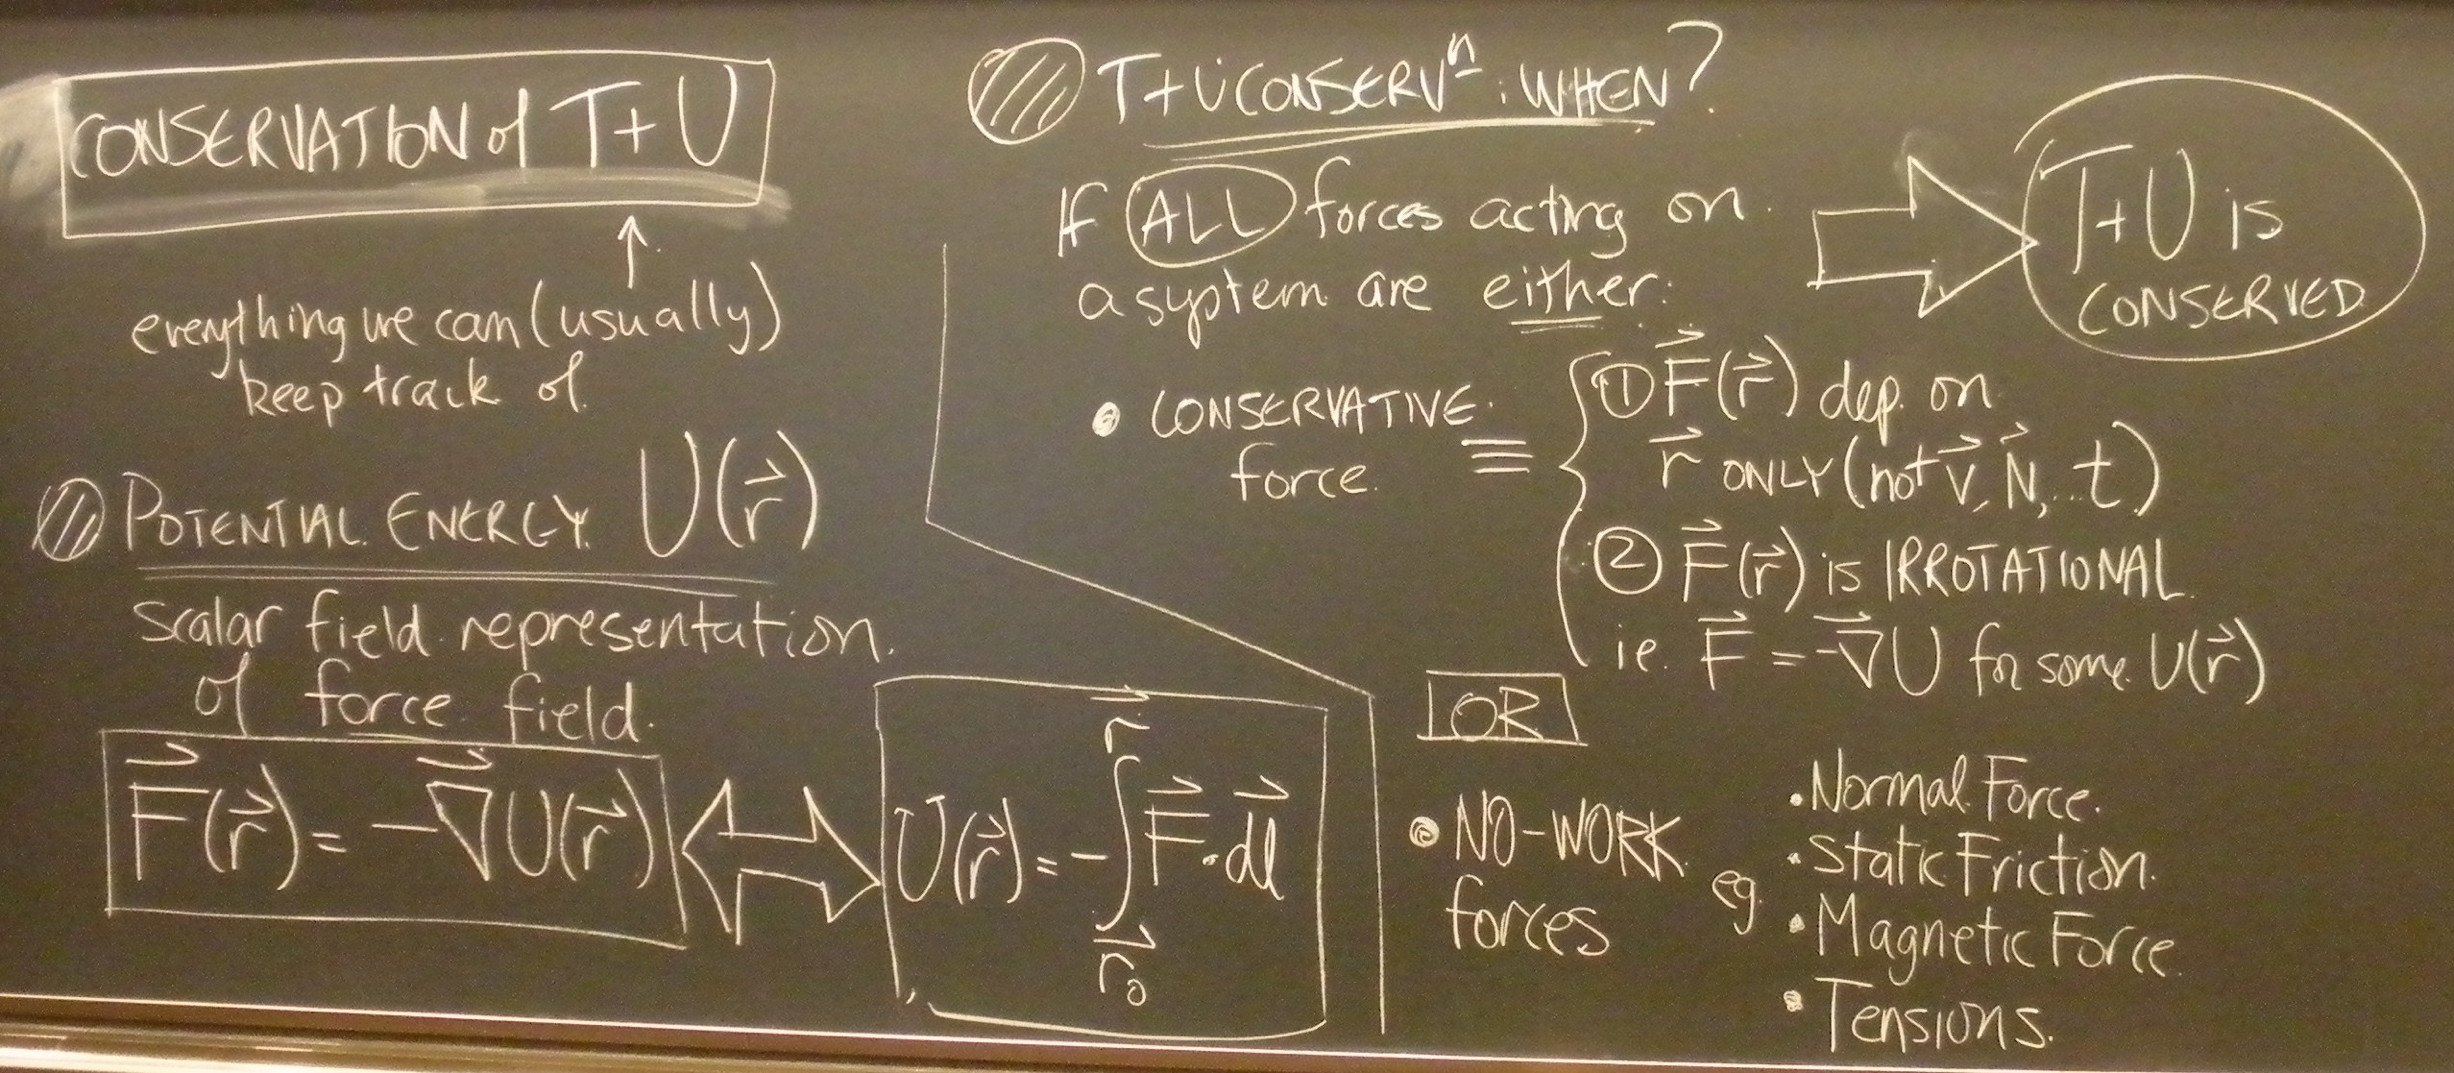 CONSERVATION of T+U
↑
everything we can (usually)
keep track of.
POTENTIAL ENERGY U(r⃗)
scalar field representation
of force field.
F⃗(r⃗) = -∇⃗U(r⃗)
U(r⃗) = -∫_{r⃗₀}^{r⃗} F⃗·dl⃗
T+U CONSERVⁿ: WHEN?
If ALL forces acting on
a system are either:
T+U is
CONSERVED
• CONSERVATIVE
force
≡
① F⃗(r⃗) dep. on
r⃗ ONLY (not v⃗, N⃗, ... t)
② F⃗(r⃗) is IRROTATIONAL
ie. F⃗ = -∇⃗U for some U(r⃗)
OR
• NO-WORK
forces
eg.
• Normal Force.
• Static Friction.
• Magnetic Force
• Tensions.